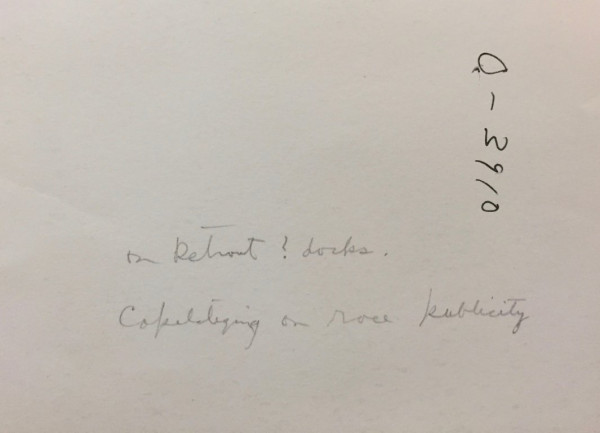 Q-2910
on Detroit ? docks.
Capitalizing on race publicity